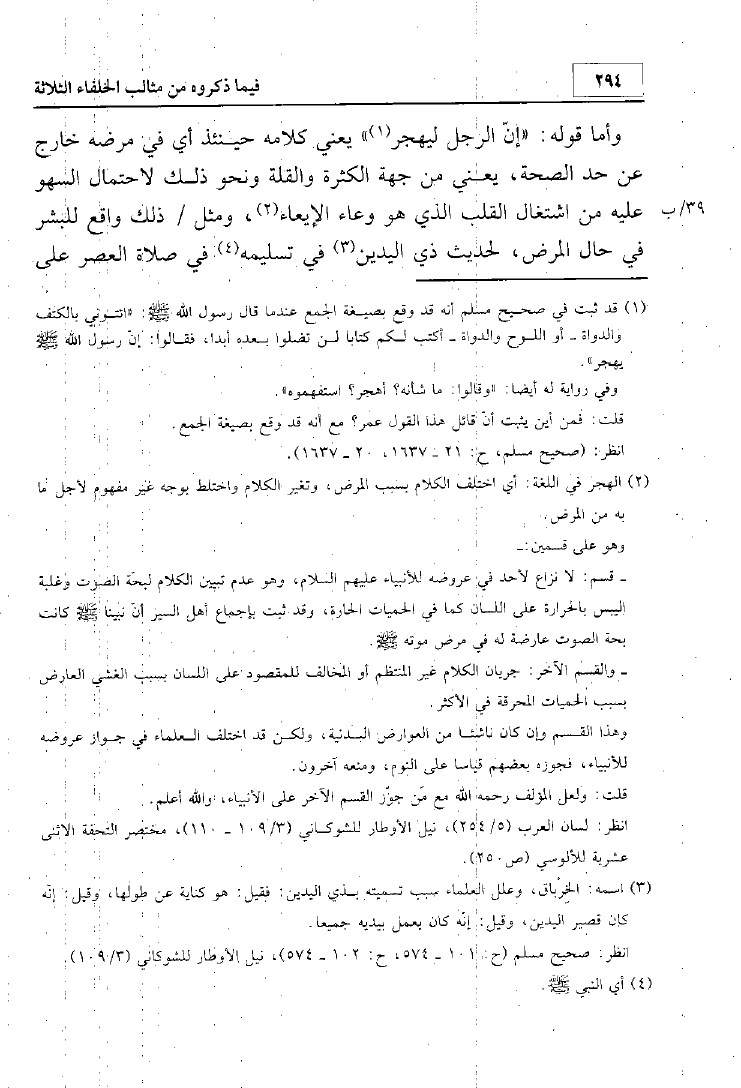 ٢٩٤
فيما ذكروه من مثالب الخلفاء الثلاثة
وأما قوله: «إنّ الرجل ليهجر(١)» يعني كلامه حينئذ أي في مرضه خارج
عن حد الصحة، يعني من جهة الكثرة والقلة ونحو ذلك لاحتمال السهو
٣٩/ب عليه من اشتغال القلب الذي هو وعاء الإيعاء(٢)، ومثل / ذلك واقع للبشر
في حال المرض، لحديث ذي اليدين(٣) في تسليمه(٤) في صلاة العصر على
(١) قد ثبت في صحيح مسلم أنه قد وقع بصيغة الجمع عندما قال رسول الله ﷺ: «ائتوني بالكتف
والدواة ـ أو اللوح والدواة ـ أكتب لكم كتابا لن تضلوا بعده أبدا، فقالوا: إنّ رسول الله ﷺ
يهجر».
وفي رواية له أيضا: «وقالوا: ما شأنه؟ أهجر؟ استفهموه».
قلت: فمن أين يثبت أنّ قائل هذا القول عمر؟ مع أنه قد وقع بصيغة الجمع.
انظر: (صحيح مسلم، ح: ٢١ ـ ١٦٣٧، ٢٠ ـ ١٦٣٧).
(٢) الهجر في اللغة: أي اختلف الكلام بسبب المرض، وتغير الكلام واختلط بوجه غير مفهوم لأجل ما
به من المرض.
وهو على قسمين:ـ
ـ قسم: لا نزاع لأحد في عروضه للأنبياء عليهم السلام، وهو عدم تبيين الكلام لبحّة الصوت وغلبة
اليبس بالحرارة على اللسان كما في الحميات الحارة، وقد ثبت بإجماع أهل السير أنّ نبينا ﷺ كانت
بحة الصوت عارضة له في مرض موته ﷺ.
ـ والقسم الآخر: جريان الكلام غير المنتظم أو المخالف للمقصود على اللسان بسبب الغشي العارض
بسبب الحميات المحرقة في الأكثر.
وهذا القسم وإن كان ناشئا من العوارض البدنية، ولكن قد اختلف العلماء في جواز عروضه
للأنبياء، فجوزه بعضهم قياسا على النوم، ومنعه آخرون.
قلت: ولعل المؤلف رحمه الله مع مَن جوّز القسم الآخر على الأنبياء، والله أعلم.
انظر: لسان العرب (٢٥٤/٥)، نيل الأوطار للشوكاني (١٠٩/٣ ـ ١١٠)، مختصر التحفة الاثنى
عشرية للألوسي (ص٢٥٠).
(٣) اسمه: الخِرْباق، وعلل العلماء سبب تسميته بذي اليدين: فقيل: هو كناية عن طولها، وقيل: إنّه
كان قصير اليدين، وقيل: إنّه كان يعمل بيديه جميعا.
انظر: صحيح مسلم (ح: ١٠١ ـ ٥٧٤، ح: ١٠٢ ـ ٥٧٤)، نيل الأوطار للشوكاني (١٠٩/٣).
(٤) أي النبي ﷺ.